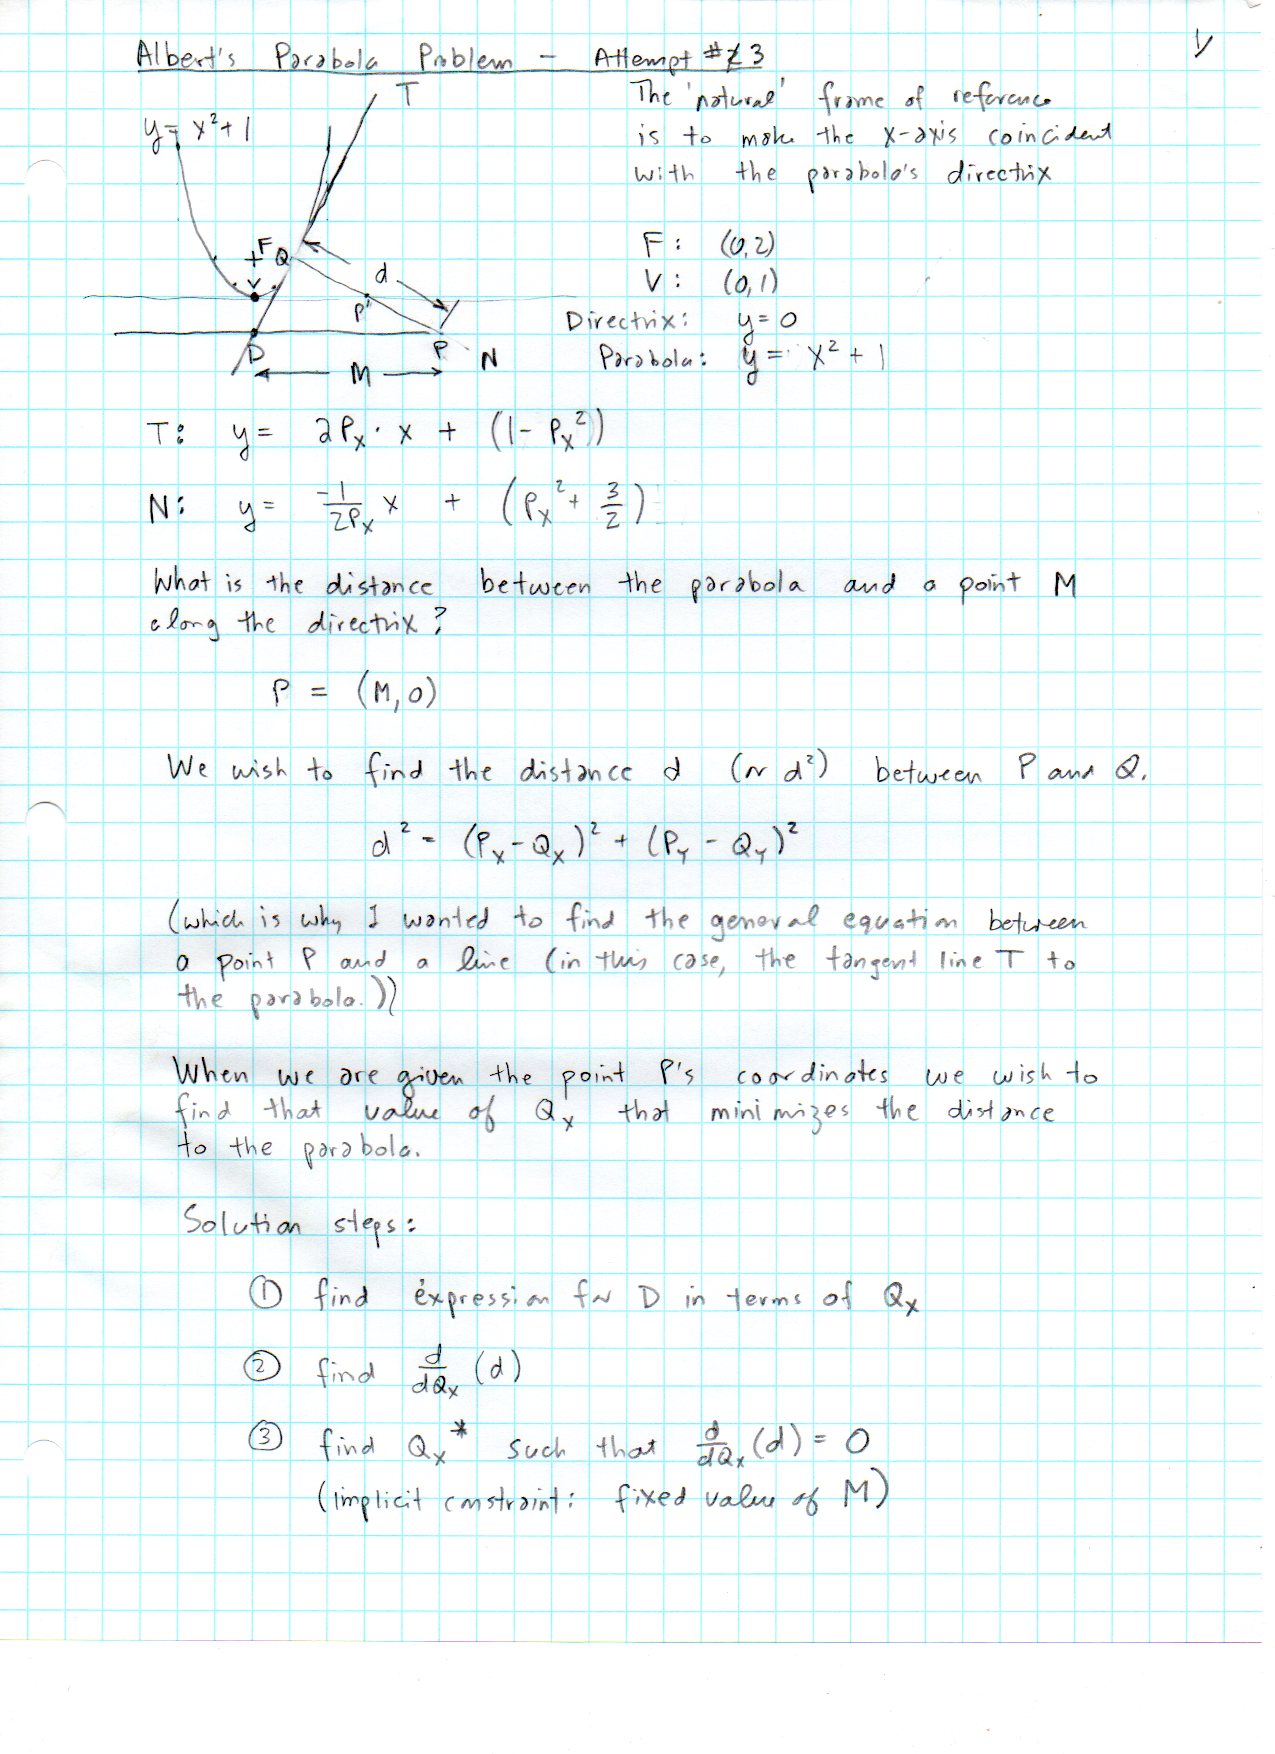 Albert's Parabola Problem - Attempt #3
The 'natural' frame of reference
is to make the x-axis coincident
with the parabola's directrix
T
y = x²+1
F
Q
d
V
P'
D
P
N
M
F: (0,2)
V: (0,1)
Directrix: y=0
Parabola: y = x² + 1
T: y = 2Px · x + (1 - Px²)
N: y = -1/2Px x + (Px² + 3/2)
What is the distance between the parabola and a point M
along the directrix?
P = (M, 0)
We wish to find the distance d (or d²) between P and Q.
d² = (Px - Qx)² + (Py - Qy)²
(which is why I wanted to find the general equation between
a point P and a line (in this case, the tangent line T to
the parabola.))
When we are given the point P's coordinates we wish to
find that value of Qx that minimizes the distance
to the parabola.
Solution steps:
① find expression for D in terms of Qx
② find d/dQx (d)
③ find Qx* such that d/dQx (d) = 0
(implicit constraint: fixed value of M)